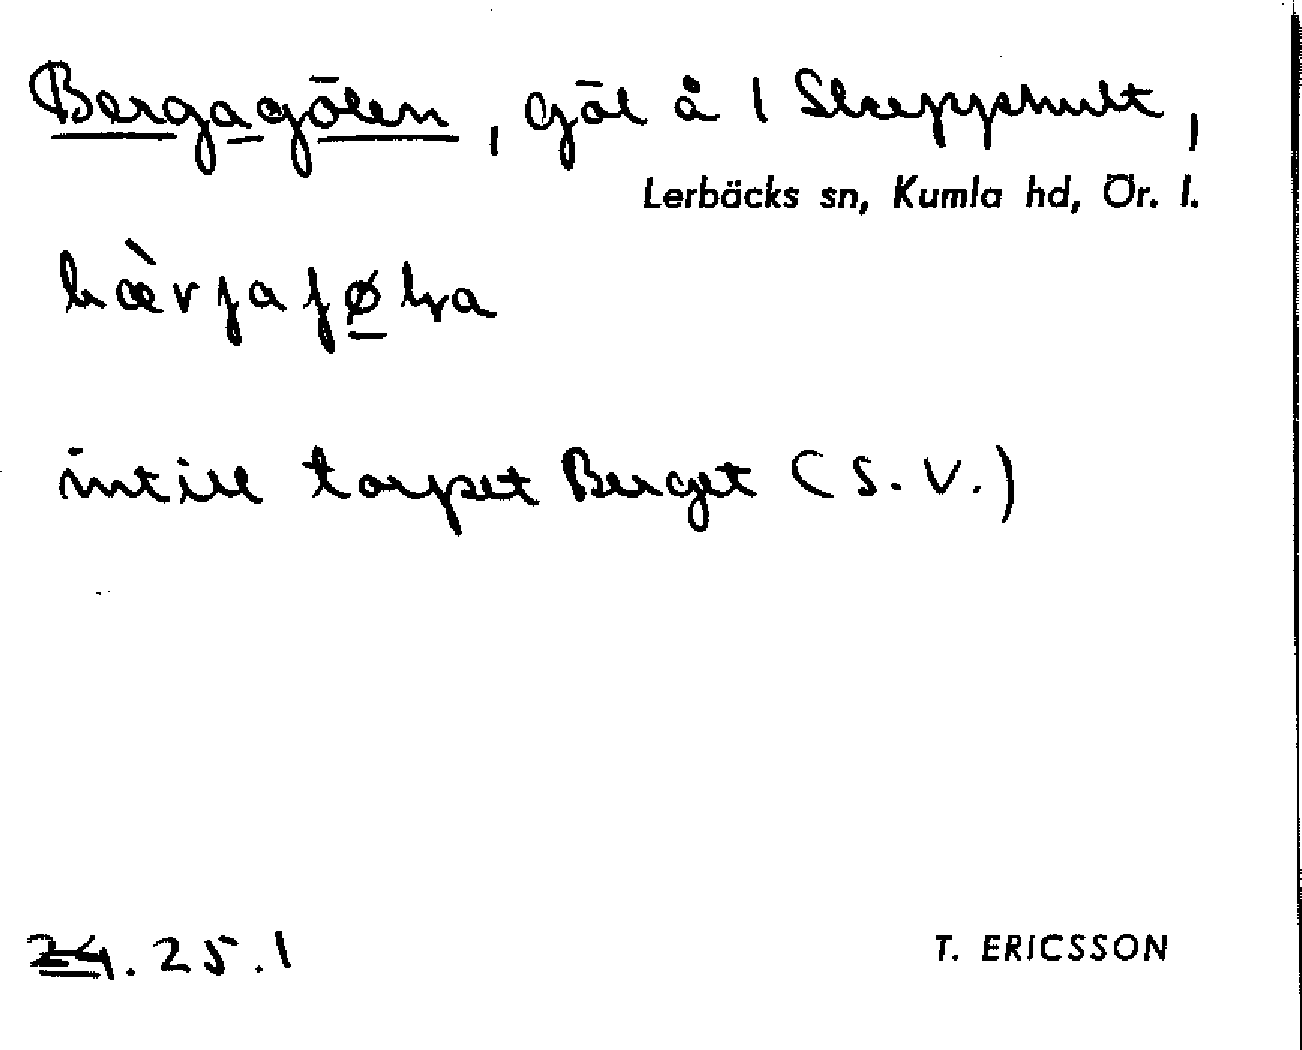 Bergagölen, göl å 1 Skeppshult,
Lerbäcks sn, Kumla hd, Ör. l.
bæ̀rjajø̲lɽa
intill torpet Berget (S.V.)
24.25.1
T. ERICSSON